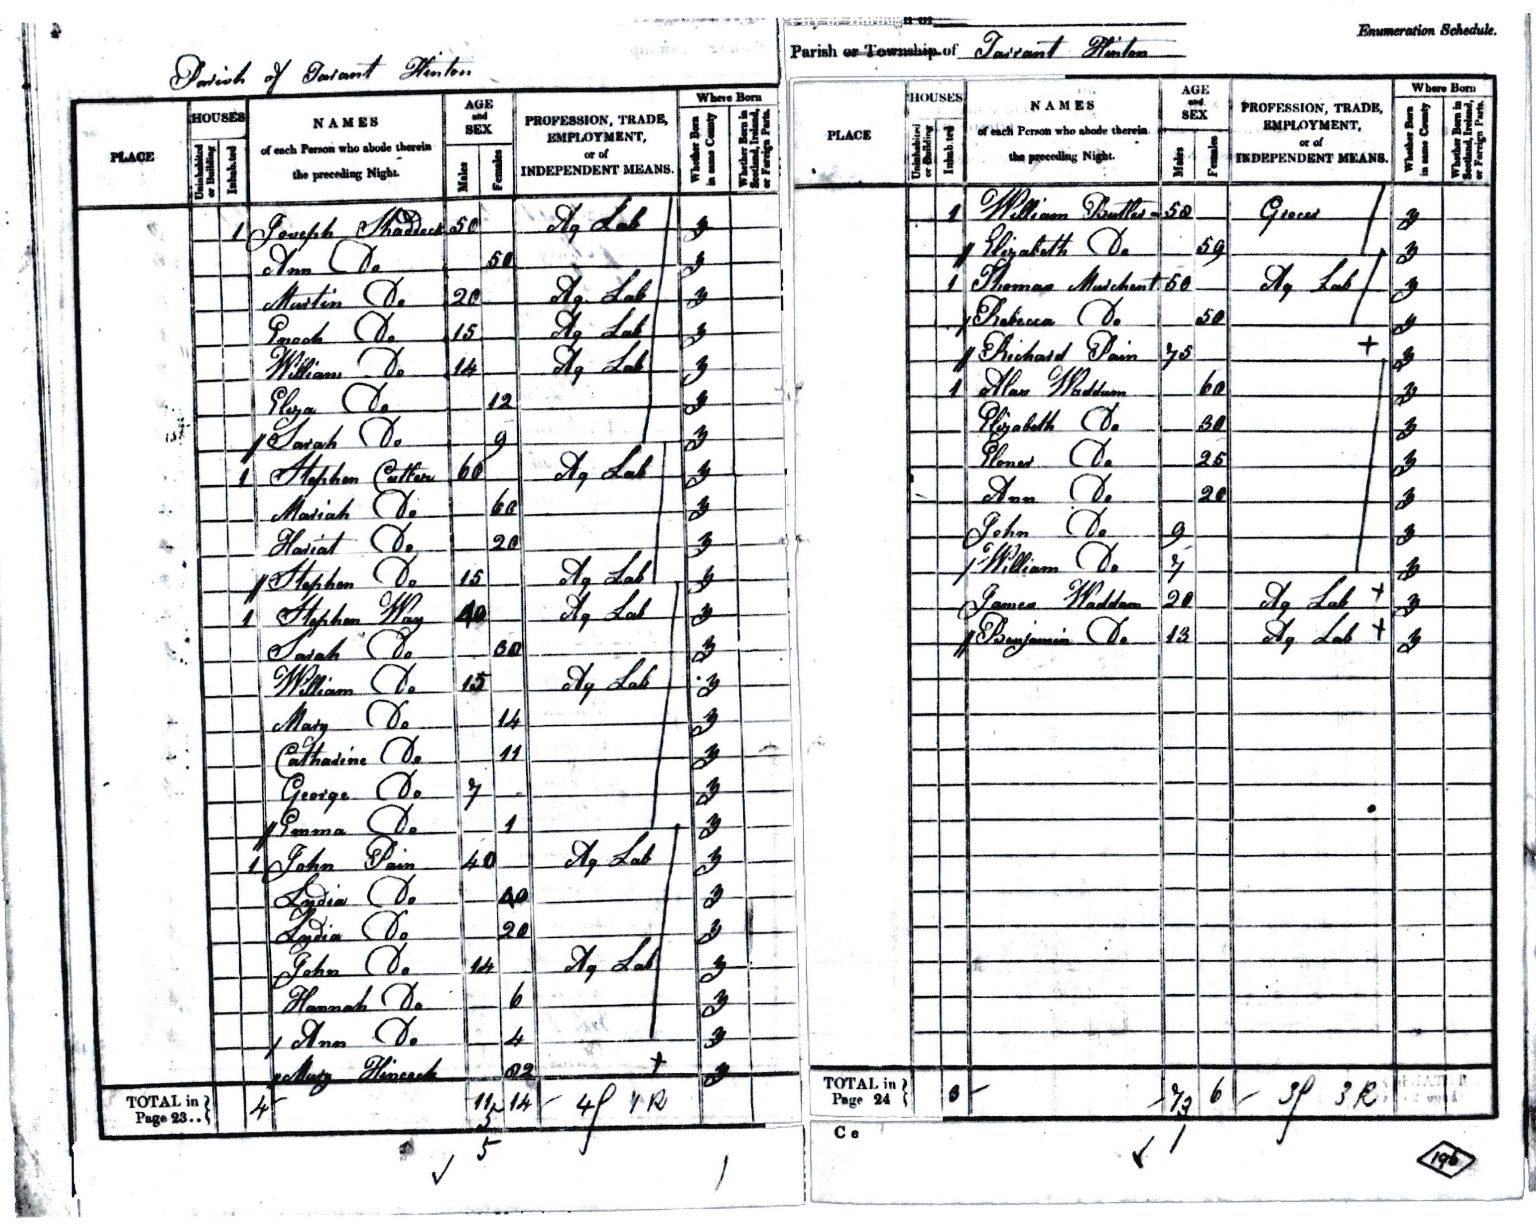 Parish of Tarant Hinton
PLACE
HOUSES
Uninhabited or Building
Inhabited
NAMES
of each Person who abode therein
the preceding Night.
AGE
and
SEX
Males
Females
PROFESSION, TRADE,
EMPLOYMENT,
or of
INDEPENDENT MEANS.
Where Born
Whether Born in same County
Whether Born in Scotland, Ireland, or Foreign Parts.
1 Joseph 50 Ag Lab y
Ann Do 50 y
Martin Do 20 Ag Lab y
Enoch Do 15 Ag Lab y
William Do 14 Ag Lab y
Eliza Do 12 y
// Sarah Do 9 y
1 Stephen Cutler 60 Ag Lab y
Mariah Do 60 y
Hariat Do 20 y
// Stephen Do 15 Ag Lab y
1 Stephen Way 40 Ag Lab y
Sarah Do 30 y
William Do 15 Ag Lab y
Mary Do 14 y
Catharine Do 11 y
George Do 7 y
// Emma Do 1 y
1 John Pain 40 Ag Lab y
Lydia Do 40 y
Lydia Do 20 y
John Do 14 Ag Lab y
Hannah Do 6 y
/ Ann Do 4 y
Mary + y
TOTAL in
Page 23..
4 11 14
5
Enumeration Schedule.
Parish or Township of Tarrant Hinton
PLACE
HOUSES
Uninhabited or Building
Inhabited
NAMES
of each Person who abode therein
the preceding Night.
AGE
and
SEX
Males
Females
PROFESSION, TRADE,
EMPLOYMENT,
or of
INDEPENDENT MEANS.
Where Born
Whether Born in same County
Whether Born in Scotland, Ireland, or Foreign Parts.
1 William Butler 50 Grocer y
// Elizabeth Do 59 y
1 Thomas Murchent 50 Ag Lab y
/ Rebecca Do 50 y
// Richard Pain 75 + y
1 Waddam 60 y
Elizabeth Do 30 y
Eloner Do 25 y
Ann Do 20 y
John Do 9 y
/ William Do 7 y
James Waddam 20 Ag Lab + y
// Benjamin Do 13 Ag Lab + y
TOTAL in
Page 24
3 7 6 3 R
C e
196